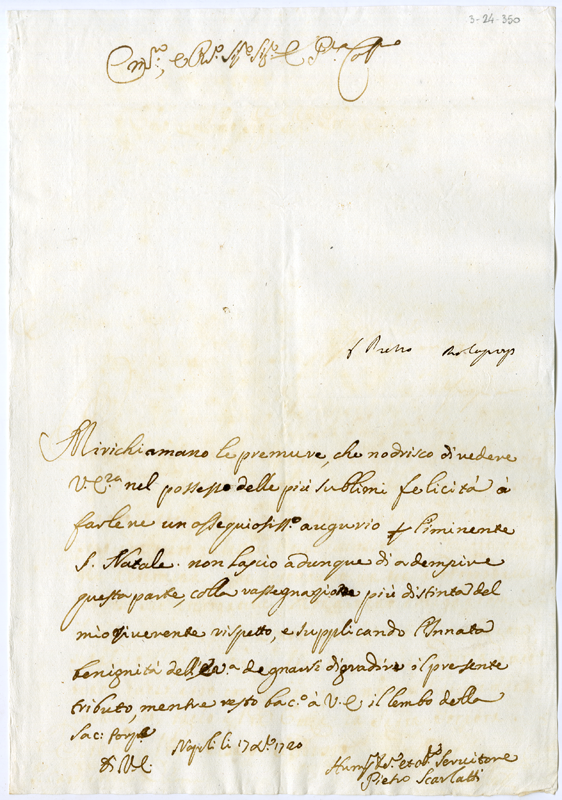 3-24-350
Mirichiamano le premure, che nodrisco di vedere
V.E.za nel possesso delle più sublimi felicità à
farlene un ossequiosiss.o augurio l'iminente
S. Natale. non lascio adunque di adempire
questa parte, colla rassegnazione più distinta del
mio riverente rispetto, e supplicando l'Innata
benignità dell'E.V.a degnarsi di gradire il presente
tributo, mentre resto bac.o à V.E. il lembo della
sac: porp.a
Di V.E.
Napoli li 17 Xbre 1720
Hum. et obl. Servitore
Pietro Scarlatti